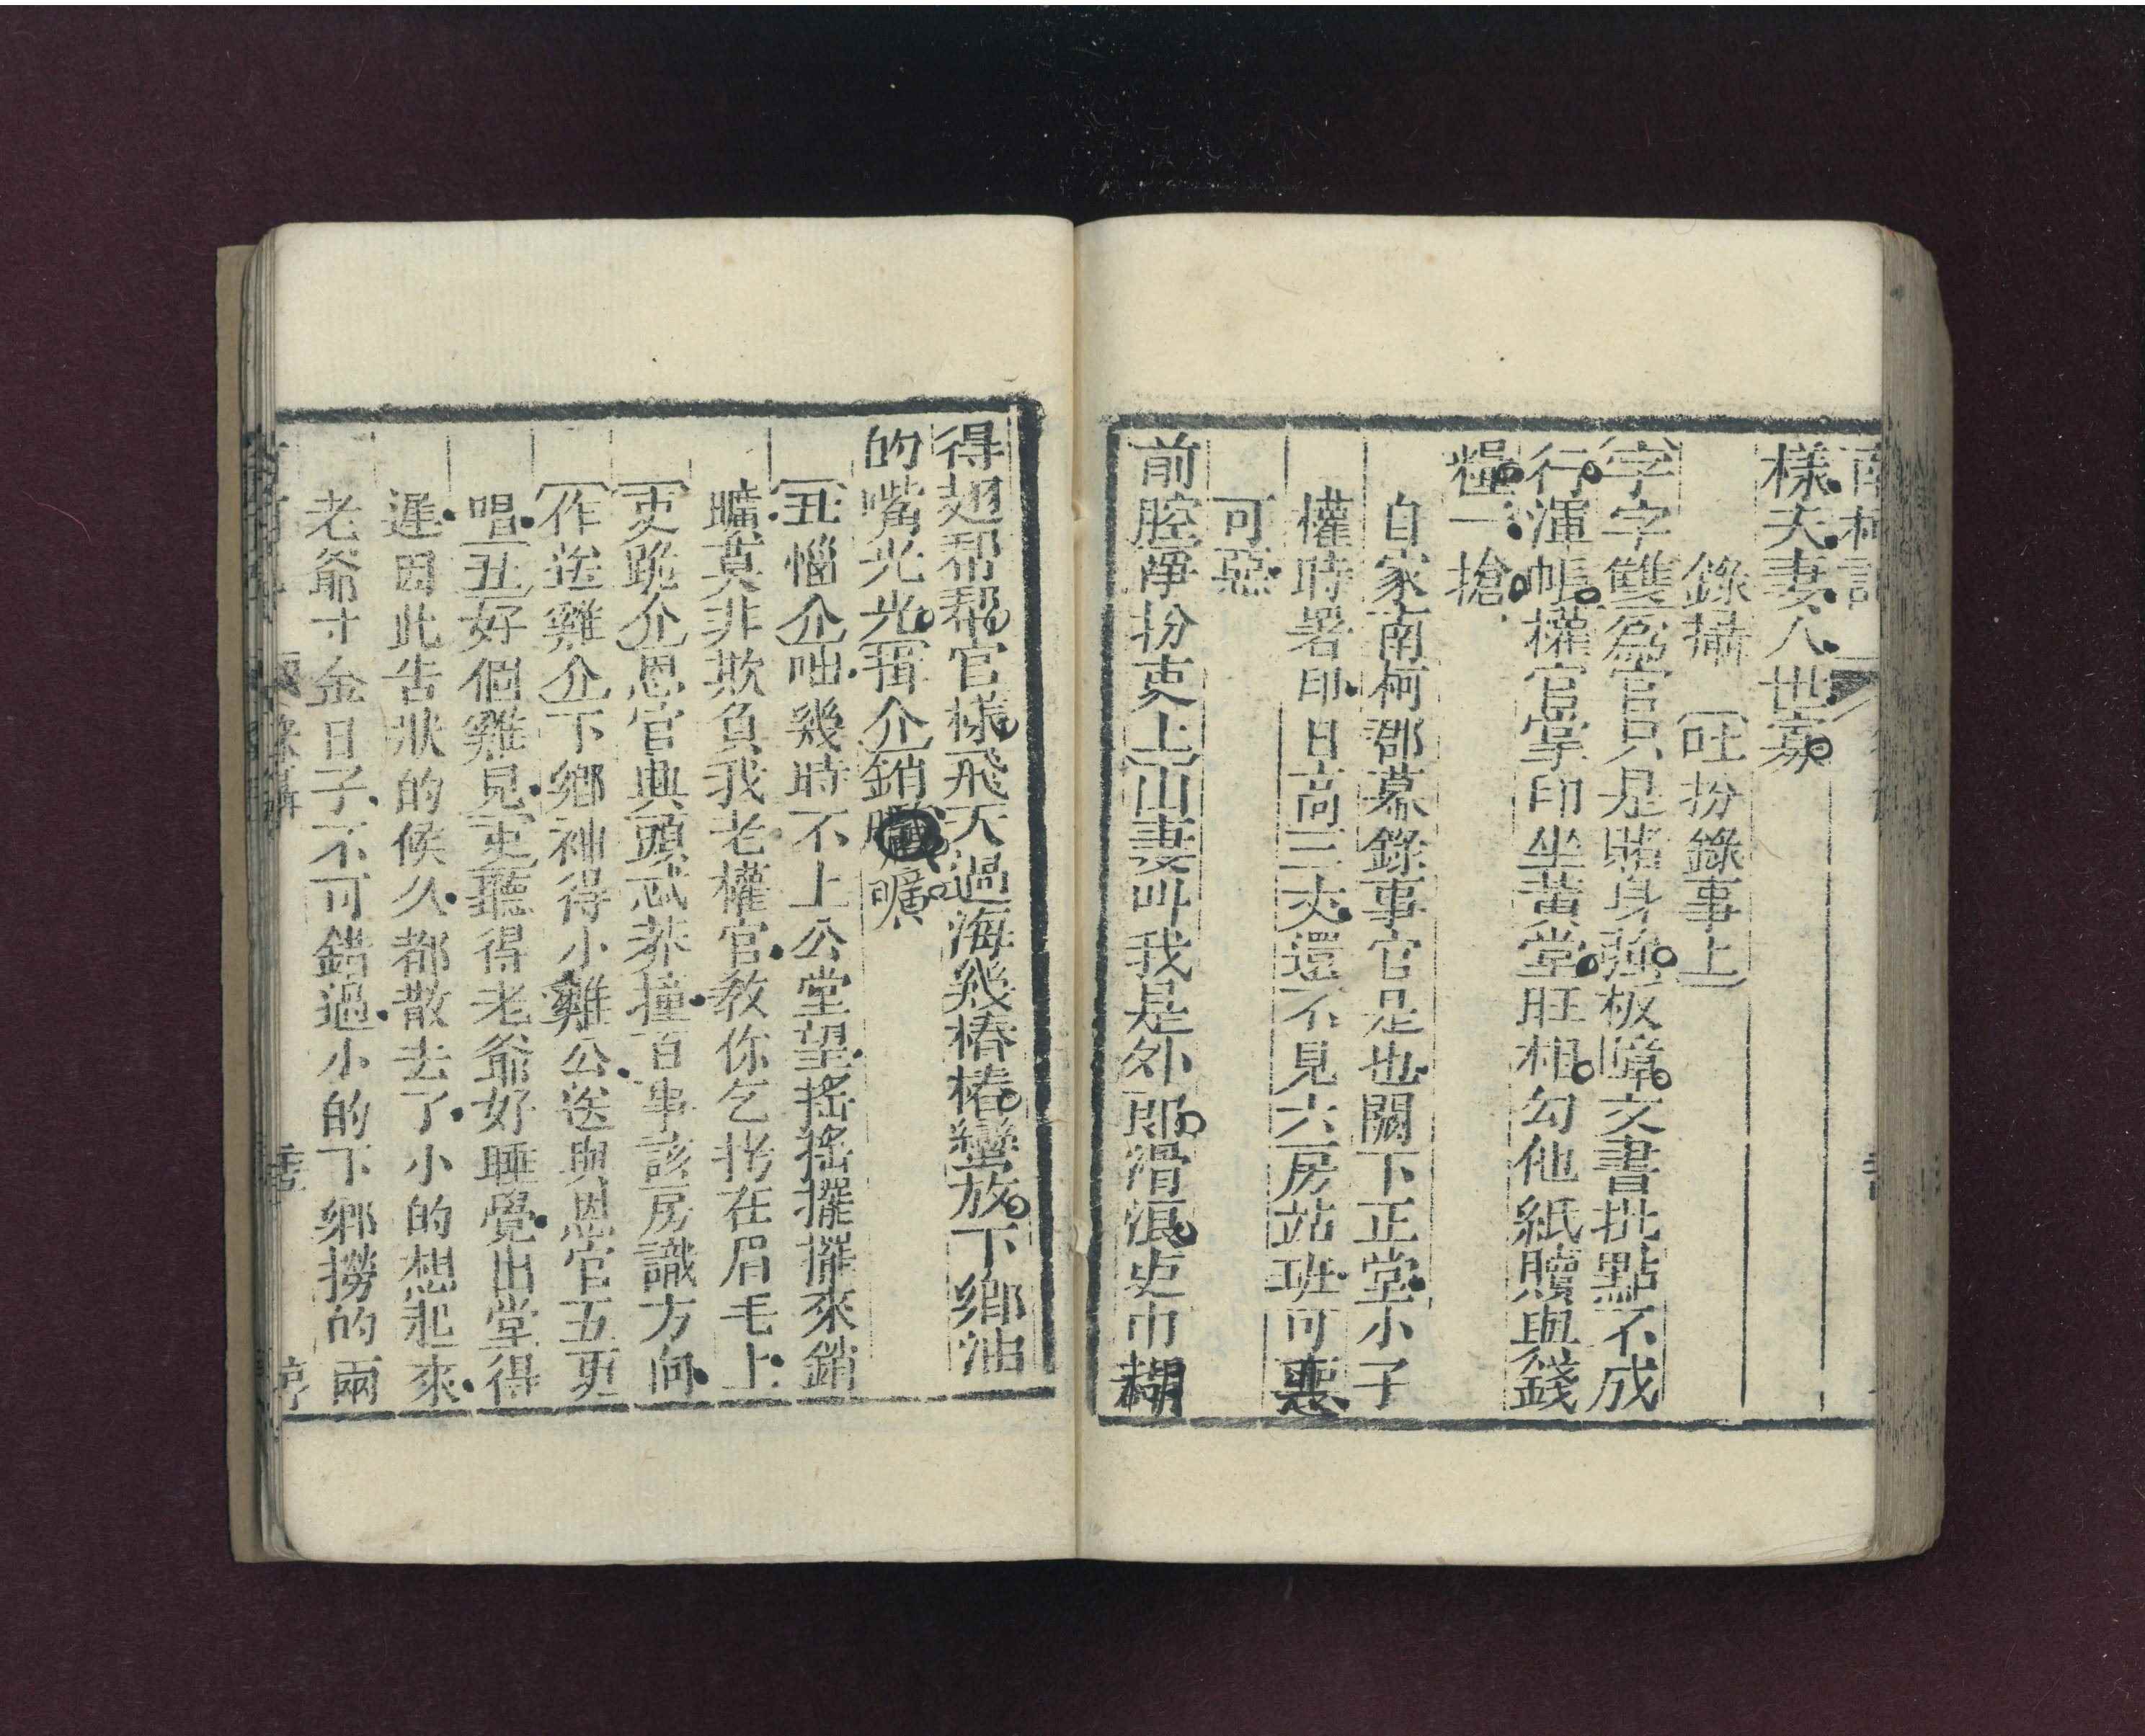 南柯記
樣夫妻人世寡
錄攝 丑扮錄事上
字字雙爲官只是賭身強板障文書批點不成
行渾帳權官掌印坐黃堂旺相勾他紙贖與錢
糧一搶
自家南柯郡幕錄事官是也闕下正堂小子
權時署印日高三丈還不見六房站班可惡
可惡
前腔淨扮吏上山妻叫我是外郎滑浪吏巾糊
得翅幇幇官樣飛天過海幾樁樁蠻放下鄉油
的嘴光光揖介銷曠
丑惱介咄幾時不上公堂望搖搖擺擺來銷
曠莫非欺負我老權官教你乞拷在眉毛上
吏跪介恩官典頭忒莽撞百事該房識方向
作送雞介下鄉袖得小雞公送與恩官五更
唱丑好個雞見吏聽得老爺好睡覺出堂得
遲因此告狀的候久都散去了小的想起來
老爺寸金日子不可錯過小的下鄉撈的兩